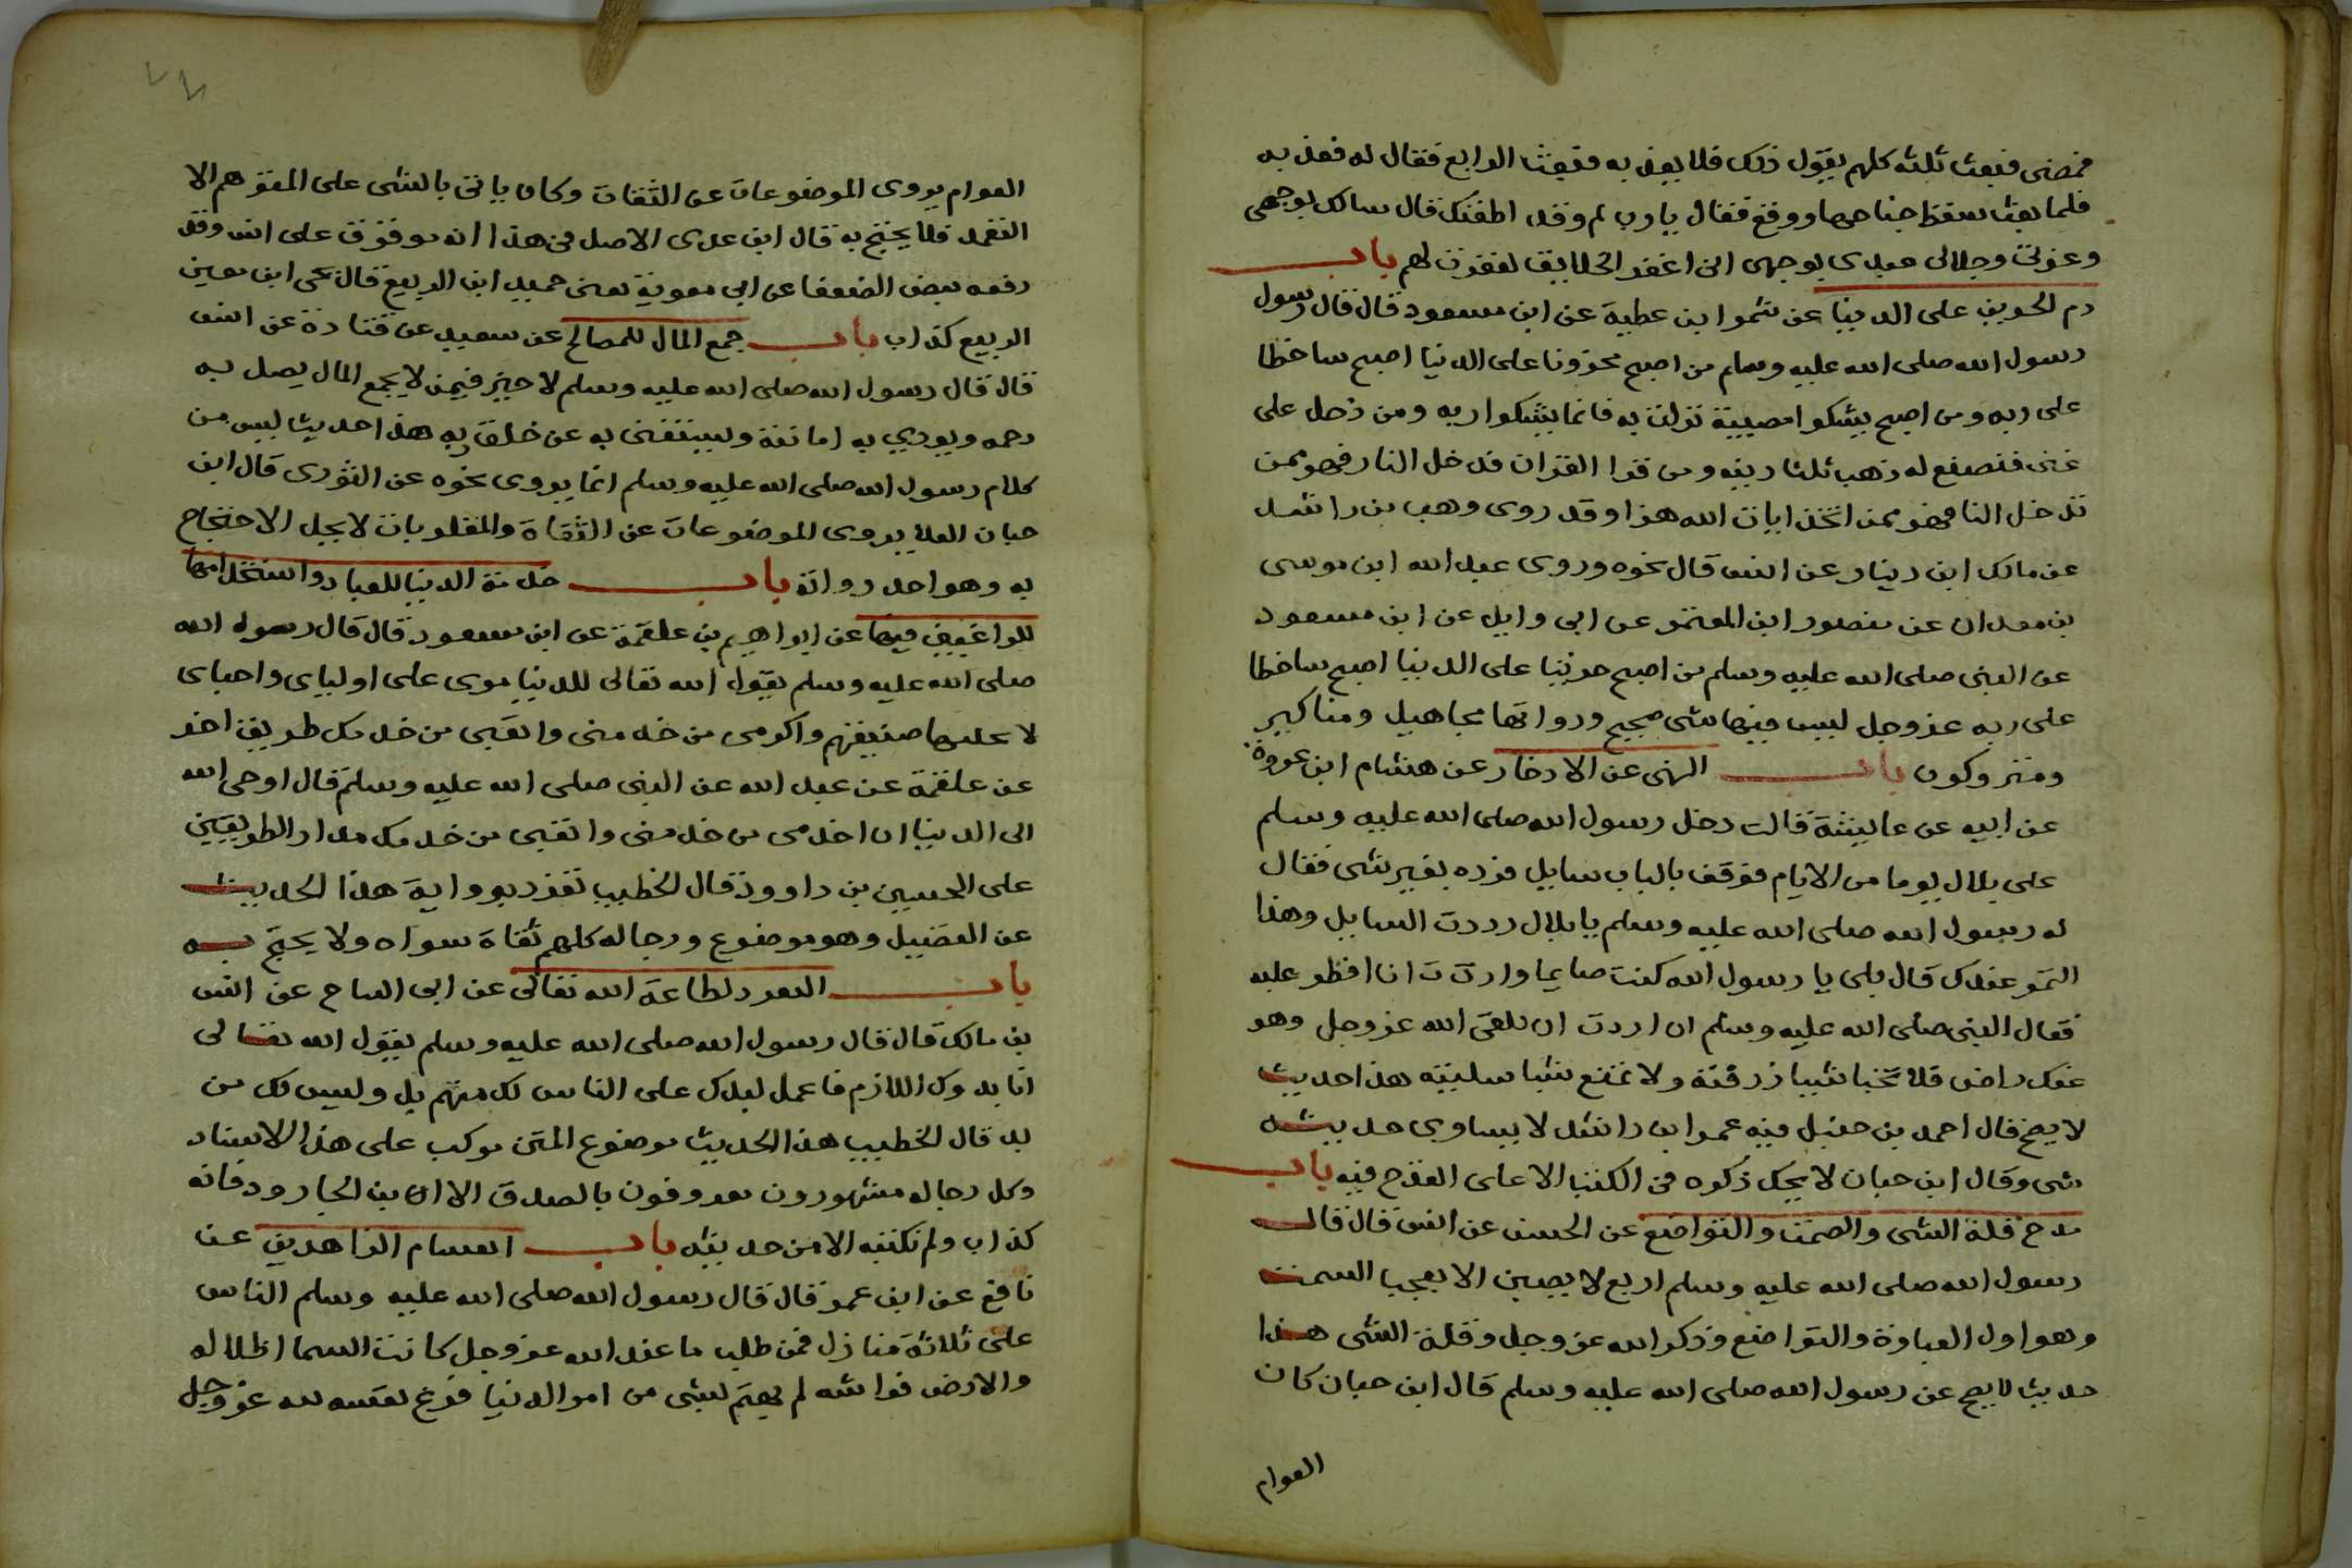 فمضى فبعث ثلثه كلهم يقول ذلك فلا يعذبه فبعث الرابع فقال له فعذبه
فلما بعث سقط جناحهما ووقع فقال يا رب لم وقد اطقتك قال سالك بوجهى
وعزتى وجلالى عبدى بوجهى انى اغفر الخلايق لغفرت لهم باب
ذم الحزين على الدنيا عن شمر ابن عطية عن ابن مسعود قال قال رسول
رسول الله صلى الله عليه وسلم من اصبح محزونا على الدنيا اصبح ساخطا
على ربه ومن اصبح يشكوا مصيبة نزلت به فانما يشكوا ربه ومن دخل على
غنى فتصنع له ذهب ثلثا دينه ومن قرا القران فدخل النار فهو ممن
تدخل النا فهو ممن اتخذ ايات الله هزوا وقد روى وهب بن راشد
عن مالك ابن دينار عن انس قال نحوه وروى عبد الله ابن موسى
بن معدان عن منصور ابن المعتمر عن ابى وايل عن ابن مسعود
عن النبى صلى الله عليه وسلم من اصبح حزينا على الدنيا اصبح ساخطا
على ربه عز وجل ليس فيها شى صحيح ورواتها مجاهيل ومناكير
ومتروكون باب النهى عن الادخار عن هشام ابن عروة
عن ابيه عن عايشة قالت دخل رسول الله صلى الله عليه وسلم
على بلال يوما من الايام فوقف بالباب سايل فرده بغير شى فقال
له رسول الله صلى الله عليه وسلم يا بلال رددت السايل وهذا
التمر عندك قال بلى يا رسول الله كنت صايما واردت ت انا افطر عليه
فقال النبى صلى الله عليه وسلم ان اردت ان تلقى الله عز وجل وهو
عنك راض فلا تخبا شييا زرقته ولا تمنع شيا سليته هذا حديث
لا يصح قال احمد بن حنبل فيه عمر ابن راشد لا يساوى حديثه
شى وقال ابن حبان لا يحل ذكره فى الكتب الا على القدح فيه باب
مدح قلة الشى والصمت والتواضع عن الحسن عن انس قال قال
رسول الله صلى الله عليه وسلم اربع لا يصبن الا بعجب السمت
وهو اول العبادة والتواضع وذكر الله عز وجل وقلة الشى هذا
حديث لا يصح عن رسول الله صلى الله عليه وسلم قال ابن حبان كان
العوام
٧٧
العوام يروى الموضوعات عن الثقات وكان ياتى بالشى على التوهم الا
التعمد فلا يحتج به قال ابن عدى الاصل فى هذا انه موقوف على انس وقد
رفعه بعض الضعفا عن ابى معوية يعنى حميد ابن الربيع قال يحى ابن معين
الربيع كذاب باب جمع المال للمصالح عن سعيد عن قتادة عن انس
قال قال رسول الله صلى الله عليه وسلم لا خير فيمن لا يجمع المال يصل به
رحمه ويودي به امانته ويستغنى به عن خلق ربه هذا حديث ليس من
كلام رسول الله صلى الله عليه وسلم انما يروى نحوه عن الثورى قال ابن
حبان العلا يروى الموضوعات عن الثقاة والمقلوبات لا يحل الاحتجاج
به وهو احد رواته باب خدمة الدنيا للعباد واستخدامها
للراغبين فيها عن ابراهيم بن علقمة عن ابن مسعود قال قال رسول الله
صلى الله عليه وسلم يقول الله تعالى للدنيا مرى على اوليا ى واحباى
لا تحليها فتفتنهم واكرمى من خدمنى واتعبى من خدمك طريق اخر
عن علقمة عن عبد الله عن النبى صلى الله عليه وسلم قال اوحى الله
الى الدنيا ان اخدمى من خدمنى واتعبى من خدمك مدار الطريقين
على الحسين بن داوود قال الخطيب تفرد برواية هذا الحديث
عن الفضيل وهو موضوع ورجاله كلهم ثقاة سواه ولا يحتج به
باب التفرد لطاعة الله تعالى عن ابى الساح عن انس
بن مالك قال قال رسول الله صلى الله عليه وسلم يقول الله تعالى
انا بدوك اللازم فاعمل لبدك على الناس لكل منهم بد وليس لك من
بد قال الخطيب هذا الحديث موضوع المتن مركب على هذا الاسناد
وكل رجاله مشهورون معروفون بالصدق الا ان بن الجارود فانه
كذاب ولم نكتبه الا من حديثه باب انقسام الزاهدين عن
نافع عن ابن عمر قال قال رسول الله صلى الله عليه وسلم الناس
على ثلاثة منازل فمن طلب ما عند الله عز وجل كانت السما اظلاله
والارض فراشه لم يهتم بشى من امر الدنيا فرغ نفسه لله عز وجل